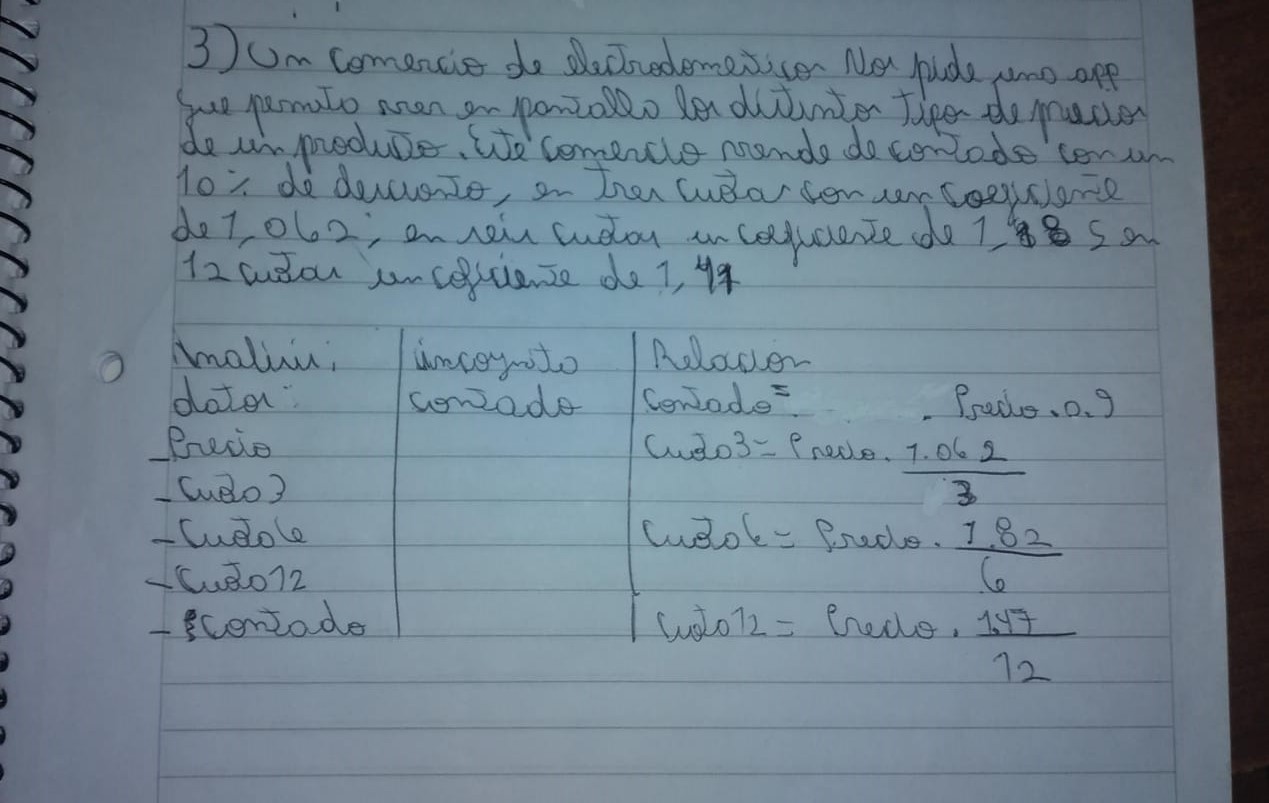 3) Un comercio de electrodomesticos Nos pide una app
que permita ver en pantalla los distintos tipos de precios
de un producto. Este comercio vende de contado con un
10% de descuento, en tres cuotas con un coeficiente
de 1,062; en seis cuotas un coeficiente de en
12 cuotas un coficiente de 1,47
Analisis; incognita Relacion
datos: contado contado = . Precio . 0.9
- Precio Cuota3 = Precio . 1.062
- Cuota3 3
- Cuota6 Cuota6 = Precio . 1.82
- Cuota12 6
- contado Cuota12 = Precio . 1.47
12